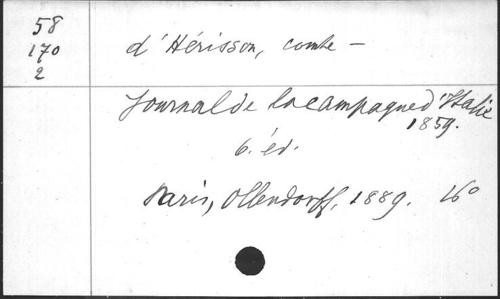 58
170
2
d'Hérisson, comte —
Journal de la campagne d'Italie
1859.
6. éd.
Paris, Ollendorff, 1889. 16°